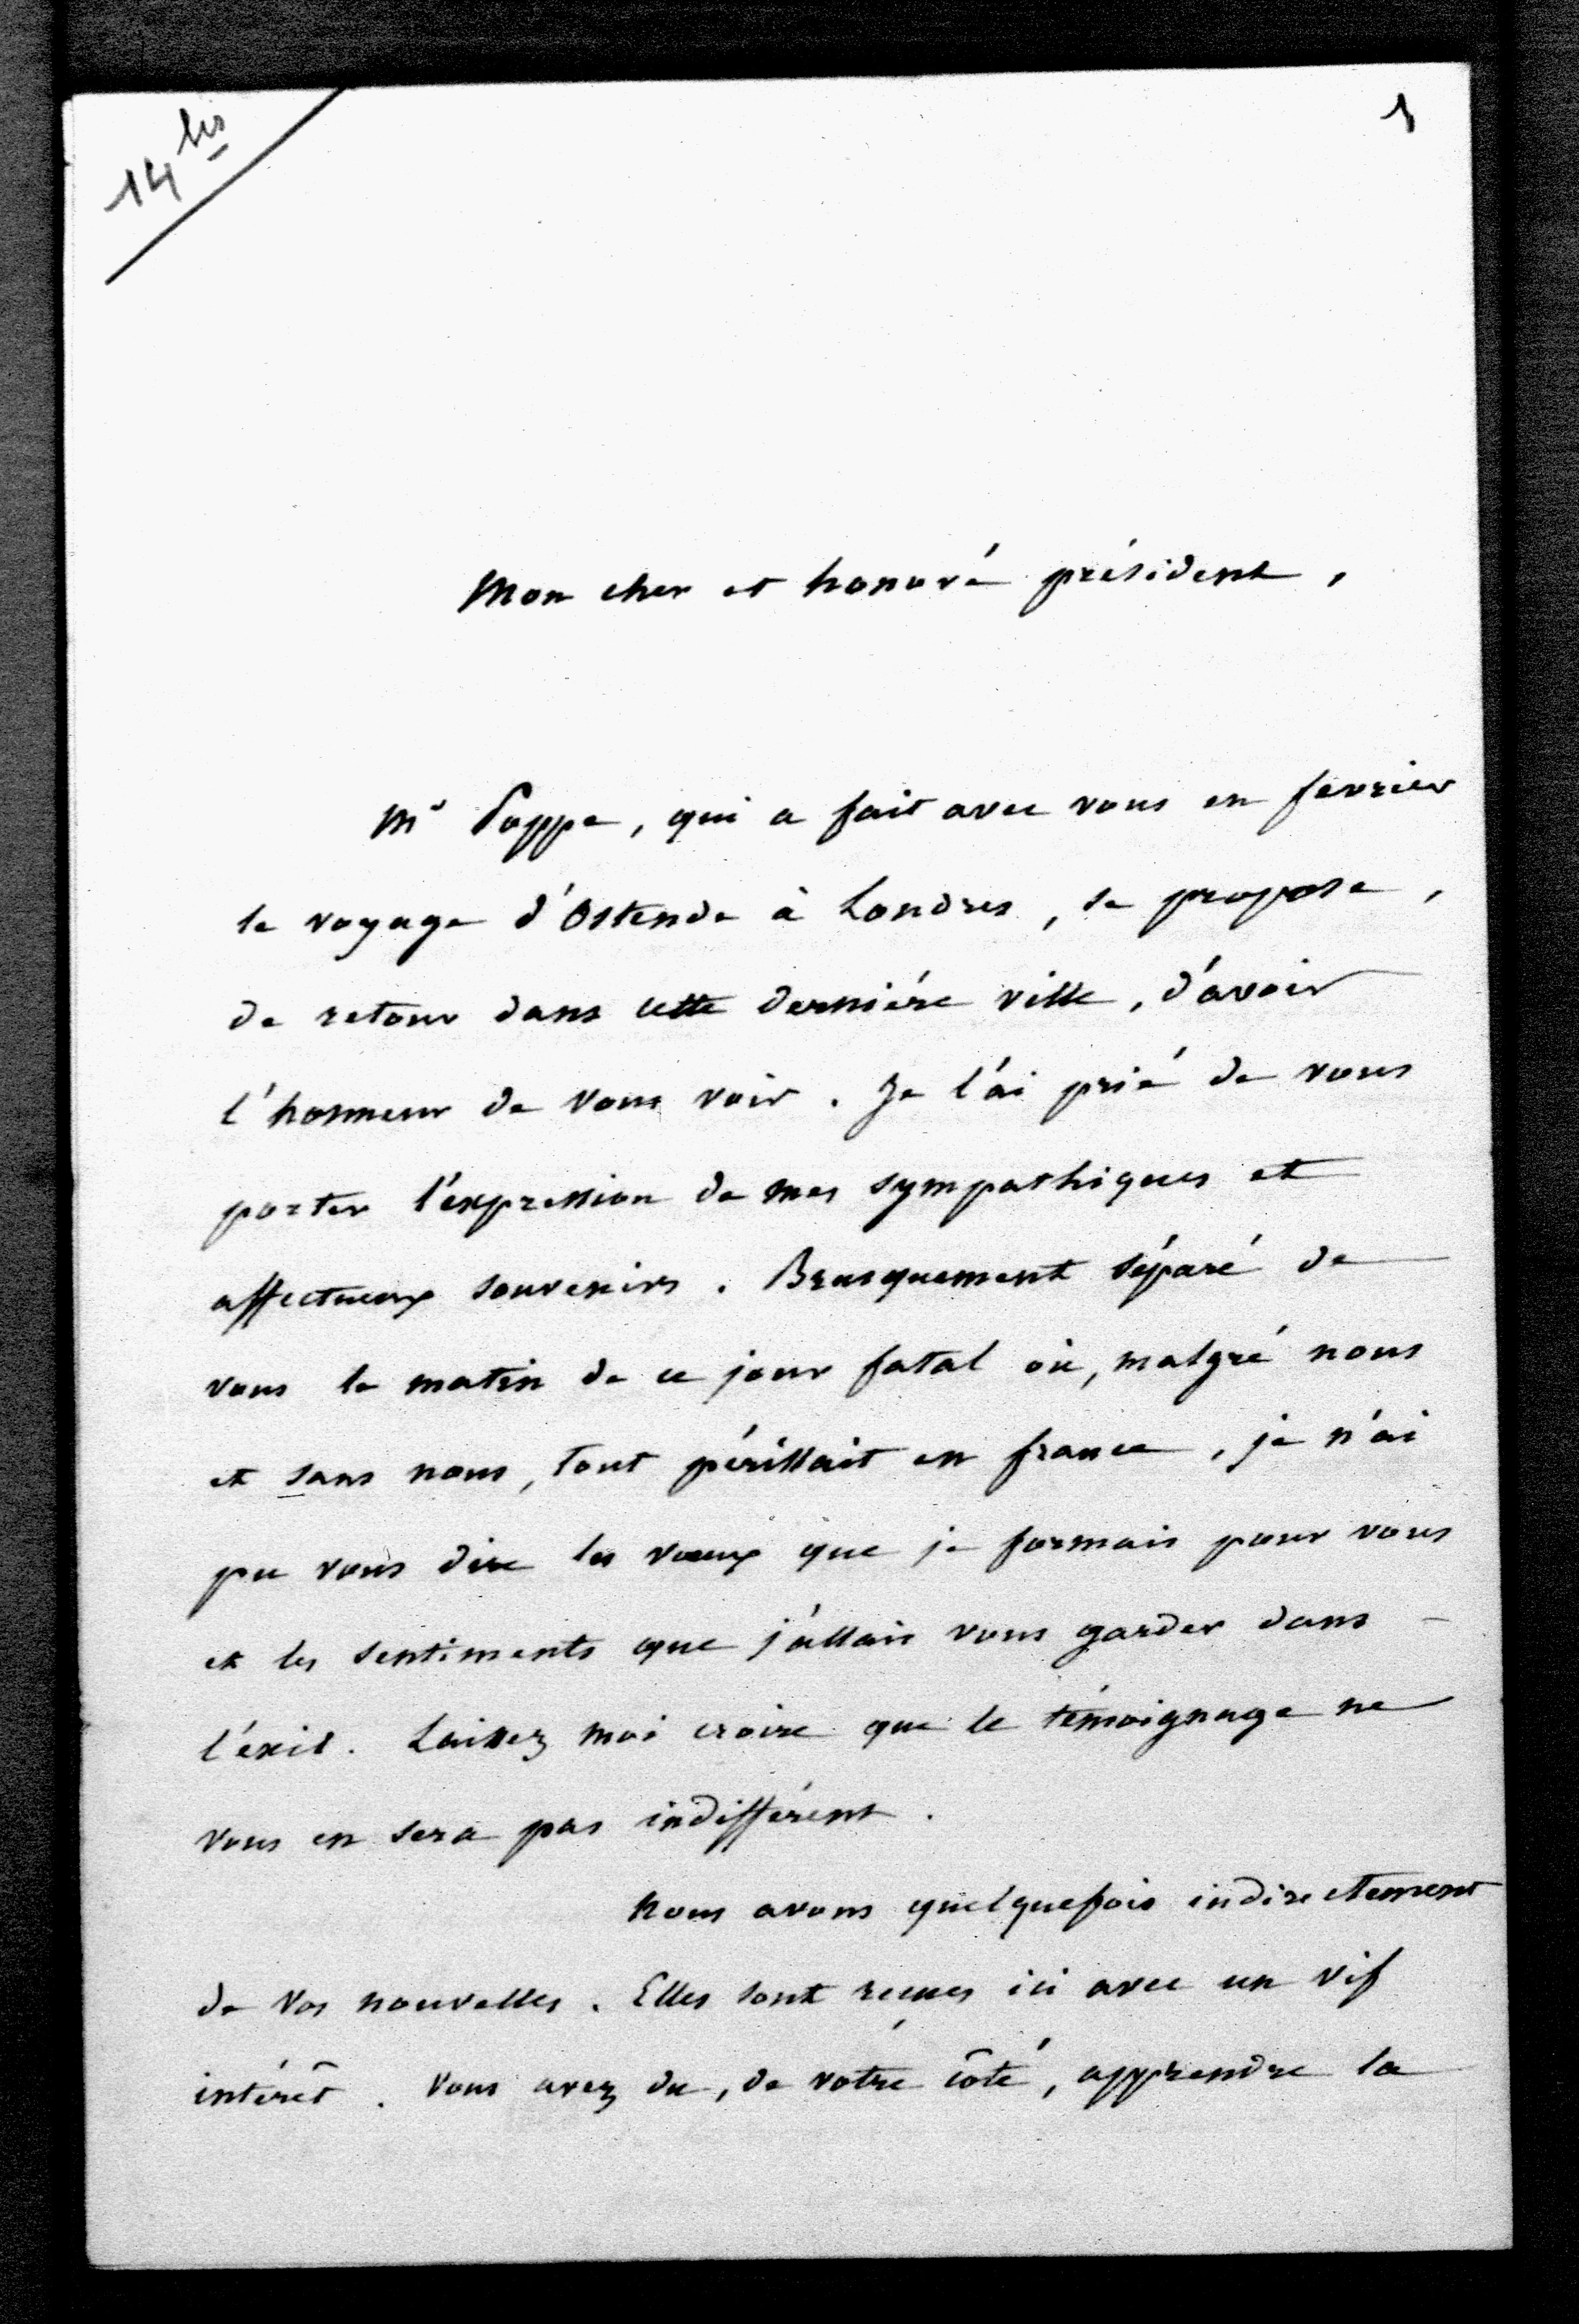 14 bis
1
Mon cher et honoré président,
Mr Poppe, qui a fait avec vous en fevrier
le voyage d'Ostende à Londres, se propose,
de retour dans cette dernière ville, d'avoir
l'honneur de vous voir. Je l'ai prié de vous
porter l'expression de mes sympathiques et
affectueux souvenirs. Brusquement séparé de
vous le matin de ce jour fatal où, malgré nous
et sans nous, tout périssait en france, je n'ai
pu vous dire les vœux que je formais pour vous
et les sentiments que j'allais vous garder dans
l'éxil. Laissez moi croire que le témoignage ne
vous en sera pas indifférent.
Nous avons quelquefois indirectement
de vos nouvelles. Elles sont reçues ici avec un vif
intérêt. Vous avez du, de votre côté, apprendre la